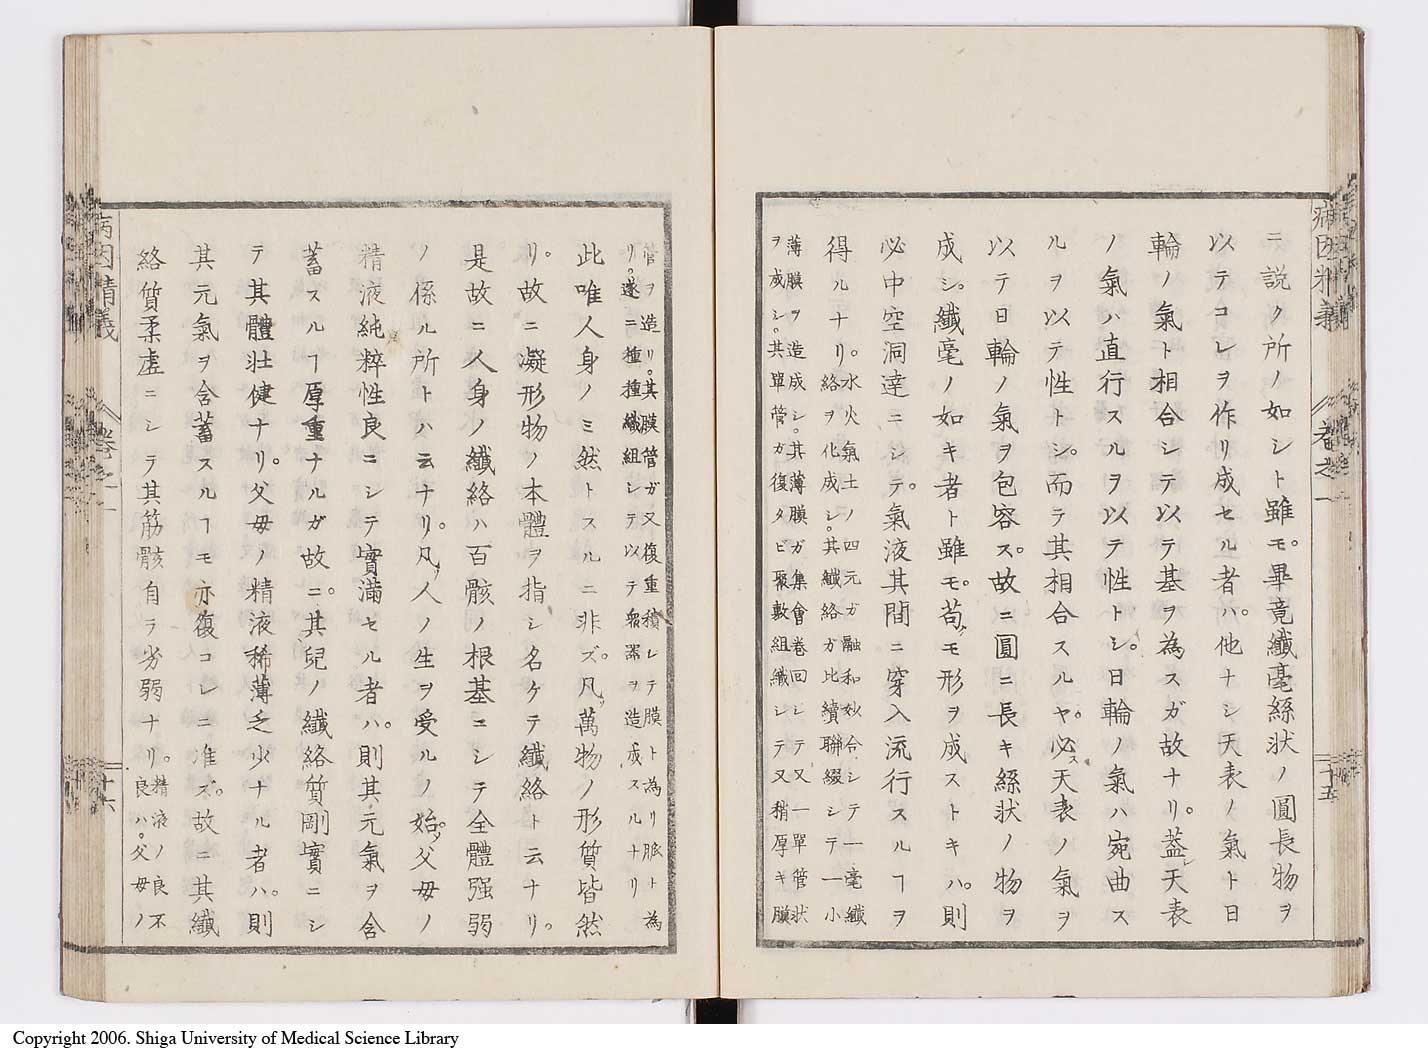 病因精義 卷之一 十五
ニ説ク所ノ如シト雖モ。畢竟纖毫絲狀ノ圓長物ヲ
以テコレヲ作リ成セル者ハ。他ナシ天表ノ氣ト日
輪ノ氣ト相合シテ以テ基ヲ為スガ故ナリ。蓋シ天表
ノ氣ハ直行スルヲ以テ性トシ。日輪ノ氣ハ宛曲ス
ルヲ以テ性トシ。而テ其相合スルヤ。必ス天表ノ氣ヲ
以テ日輪ノ氣ヲ包容ス。故ニ圓ニ長キ絲狀ノ物ヲ
成シ。纖毫ノ如キ者ト雖モ。苟モ形ヲ成ストキハ。則
必中空洞達ニシテ。氣液其間ニ穿入流行スルヿヲ
得ルナリ。水火氣土ノ四元ガ融和妙合シテ一毫纖
絡ヲ化成シ。其纖絡ガ比續聯綴シテ一小
薄膜ヲ造成シ。其薄膜ガ集會卷回シテ又一單管狀
ヲ成シ。其單管ガ復タビ聚數組織シテ又稍厚キ膜
管ヲ造リ。其膜管ガ又復重積シテ膜ト為リ脈ト為
リ。遂ニ種種織組シテ以テ衆器ヲ造成スルナリ
此唯人身ノミ然トスルニ非ズ。凡萬物ノ形質皆然
リ。故ニ凝形物ノ本體ヲ指シ名ケテ纖絡ト云ナリ。
是故ニ人身ノ纖絡ハ百骸ノ根基ニシテ全體強弱
ノ係ル所トハ云ナリ。凡ソ人ノ生ヲ受ルノ始。父母ノ
精液純粹性良ニシテ實滿セル者ハ。則其元氣ヲ含
蓄スルヿ厚重ナルガ故ニ。其兒ノ纖絡質剛實ニシ
テ其體壯健ナリ。父母ノ精液稀薄乏少ナル者ハ。則
其元氣ヲ含蓄スルヿモ亦復コレニ准ズ。故ニ其纖
絡質柔虛ニシテ其筋骸自ラ劣弱ナリ。精液ノ良不
良ハ。父母ノ
病因精義 卷之一 十六
Copyright 2006. Shiga University of Medical Science Library